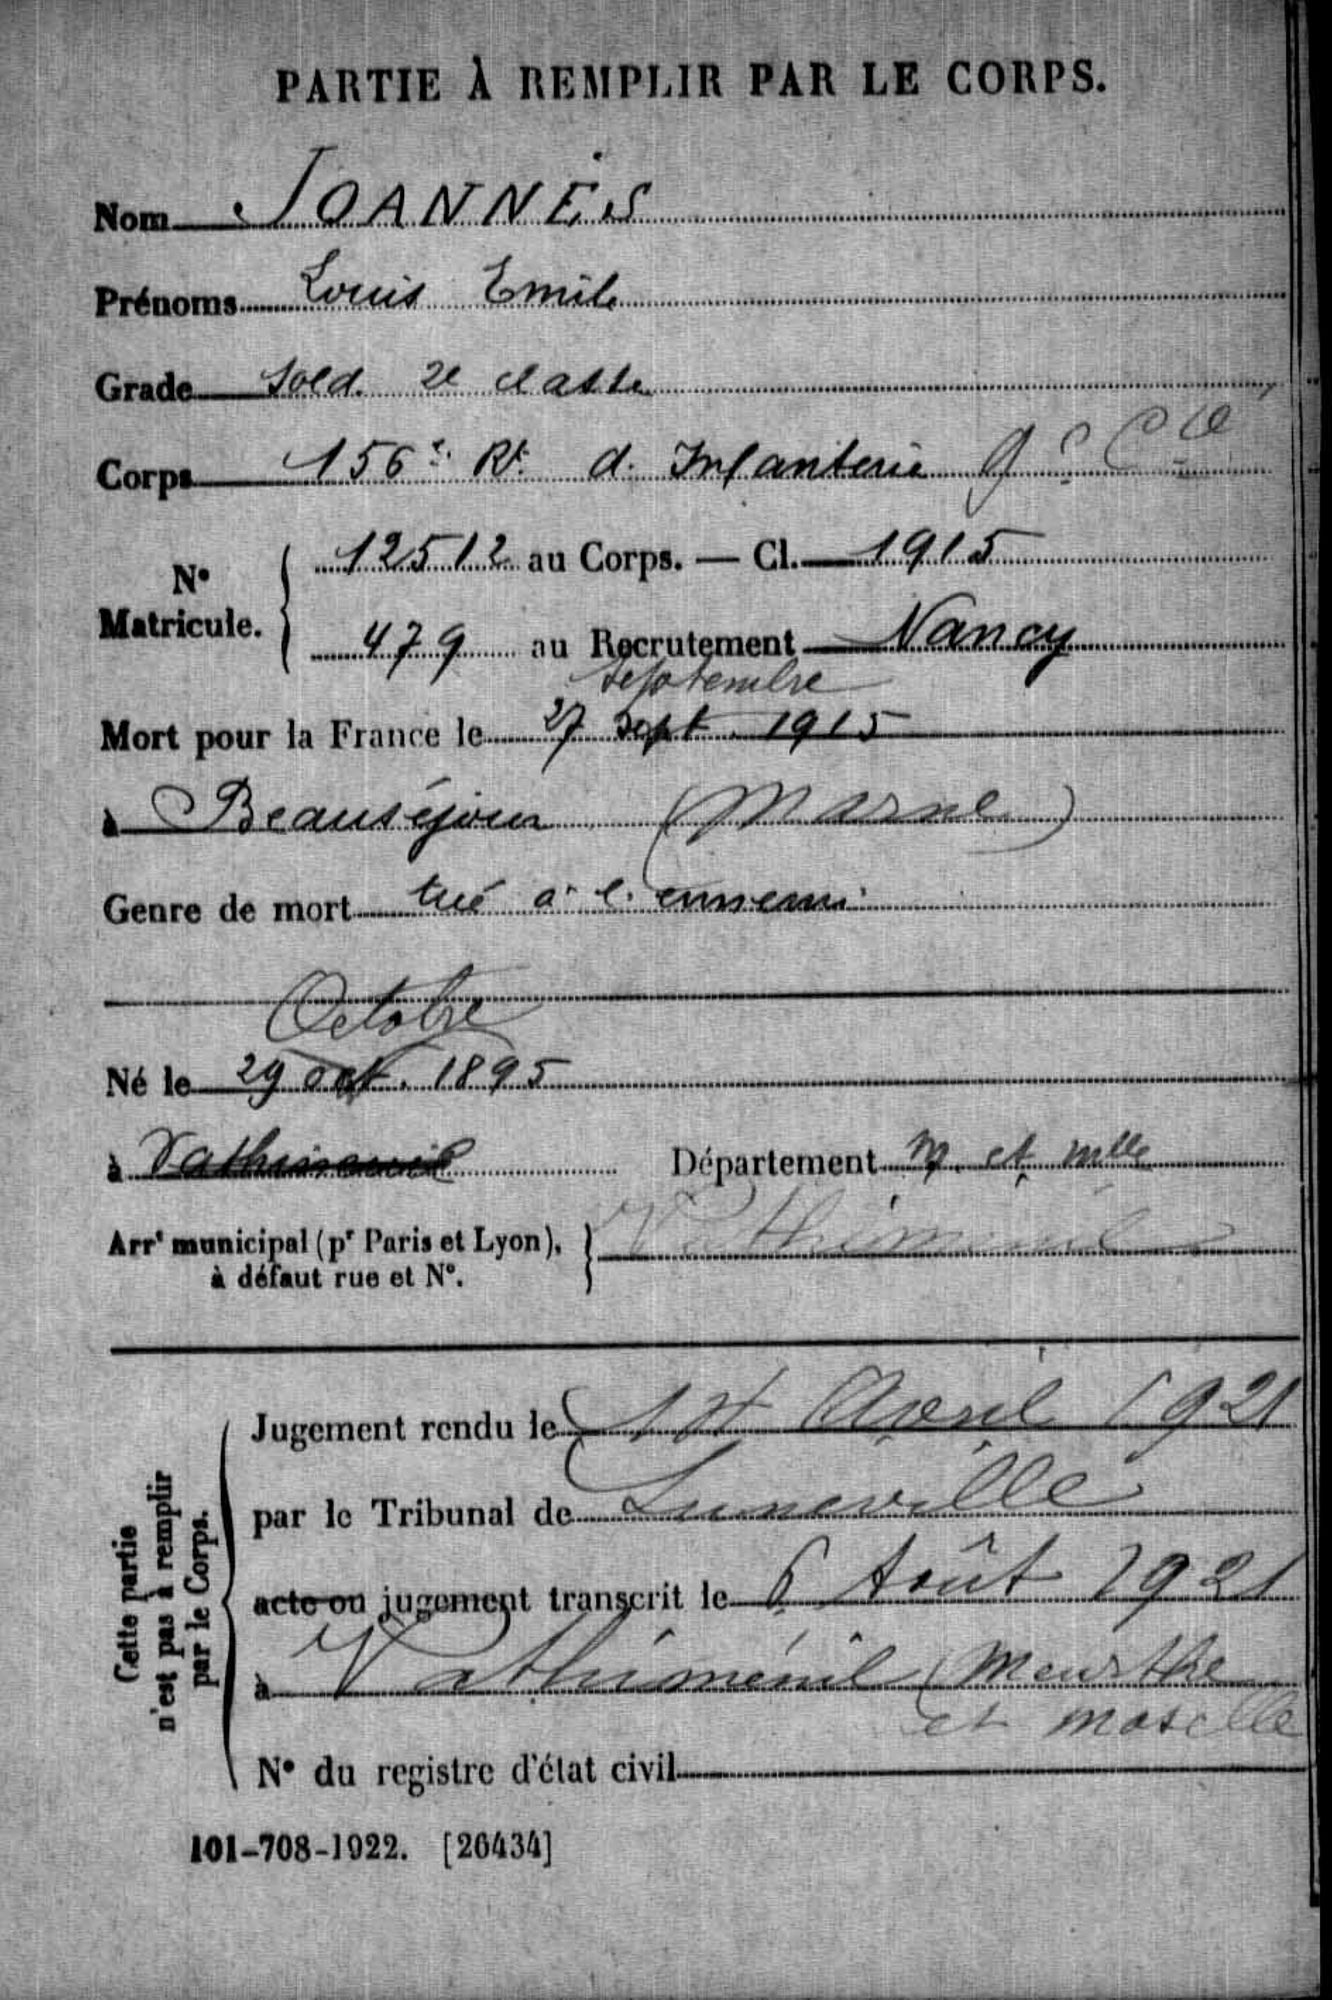 PARTIE À REMPLIR PAR LE CORPS.
Nom JOANNÈS
Prénoms Louis Emile
Grade Sold. 2e classe
Corps 156e Rt d. Infanterie 9e Cie
N° Matricule. 12512 au Corps. — Cl. 1915
479 au Recrutement Nancy
Septembre
Mort pour la France le 27 sept. 1915
à Beauséjour (Marne)
Genre de mort tué à l'ennemi
Octobre
Né le 29 oct. 1895
à Vathiménil Département M. et Mlle
Arrt municipal (pr Paris et Lyon), à défaut rue et N°. Vathiménil
Cette partie n'est pas à remplir par le Corps.
Jugement rendu le Avril 1921
par le Tribunal de Lunéville
acte ou jugement transcrit le 6 Août 1921
à Vathiménil (Meurthe
et Moselle
N° du registre d'état civil
101-708-1922. [26434]